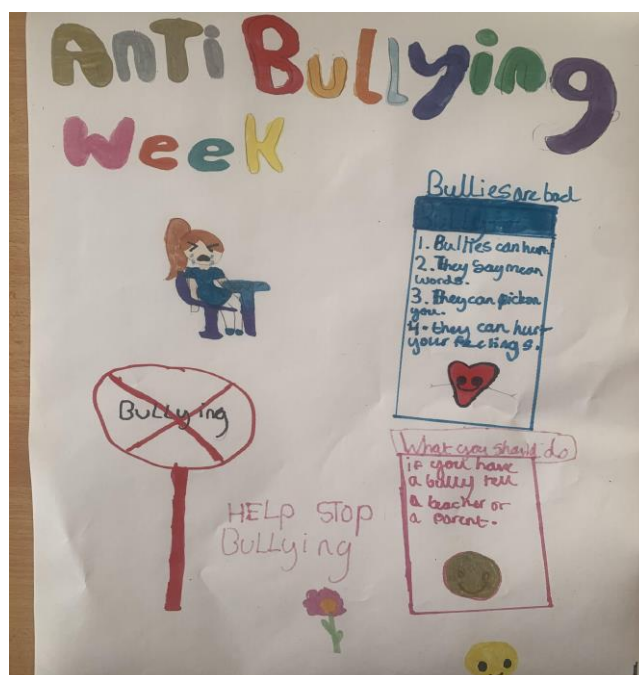 Anti Bullying
Week
Bullies are bad
1. Bullies can hurt
2. They say mean
words.
3. They can pick on
you.
4. they can hurt
your feelings.
Bullying
What you should do
if you have
a bully tell
a teacher or
a parent.
HELP STOP
Bullying